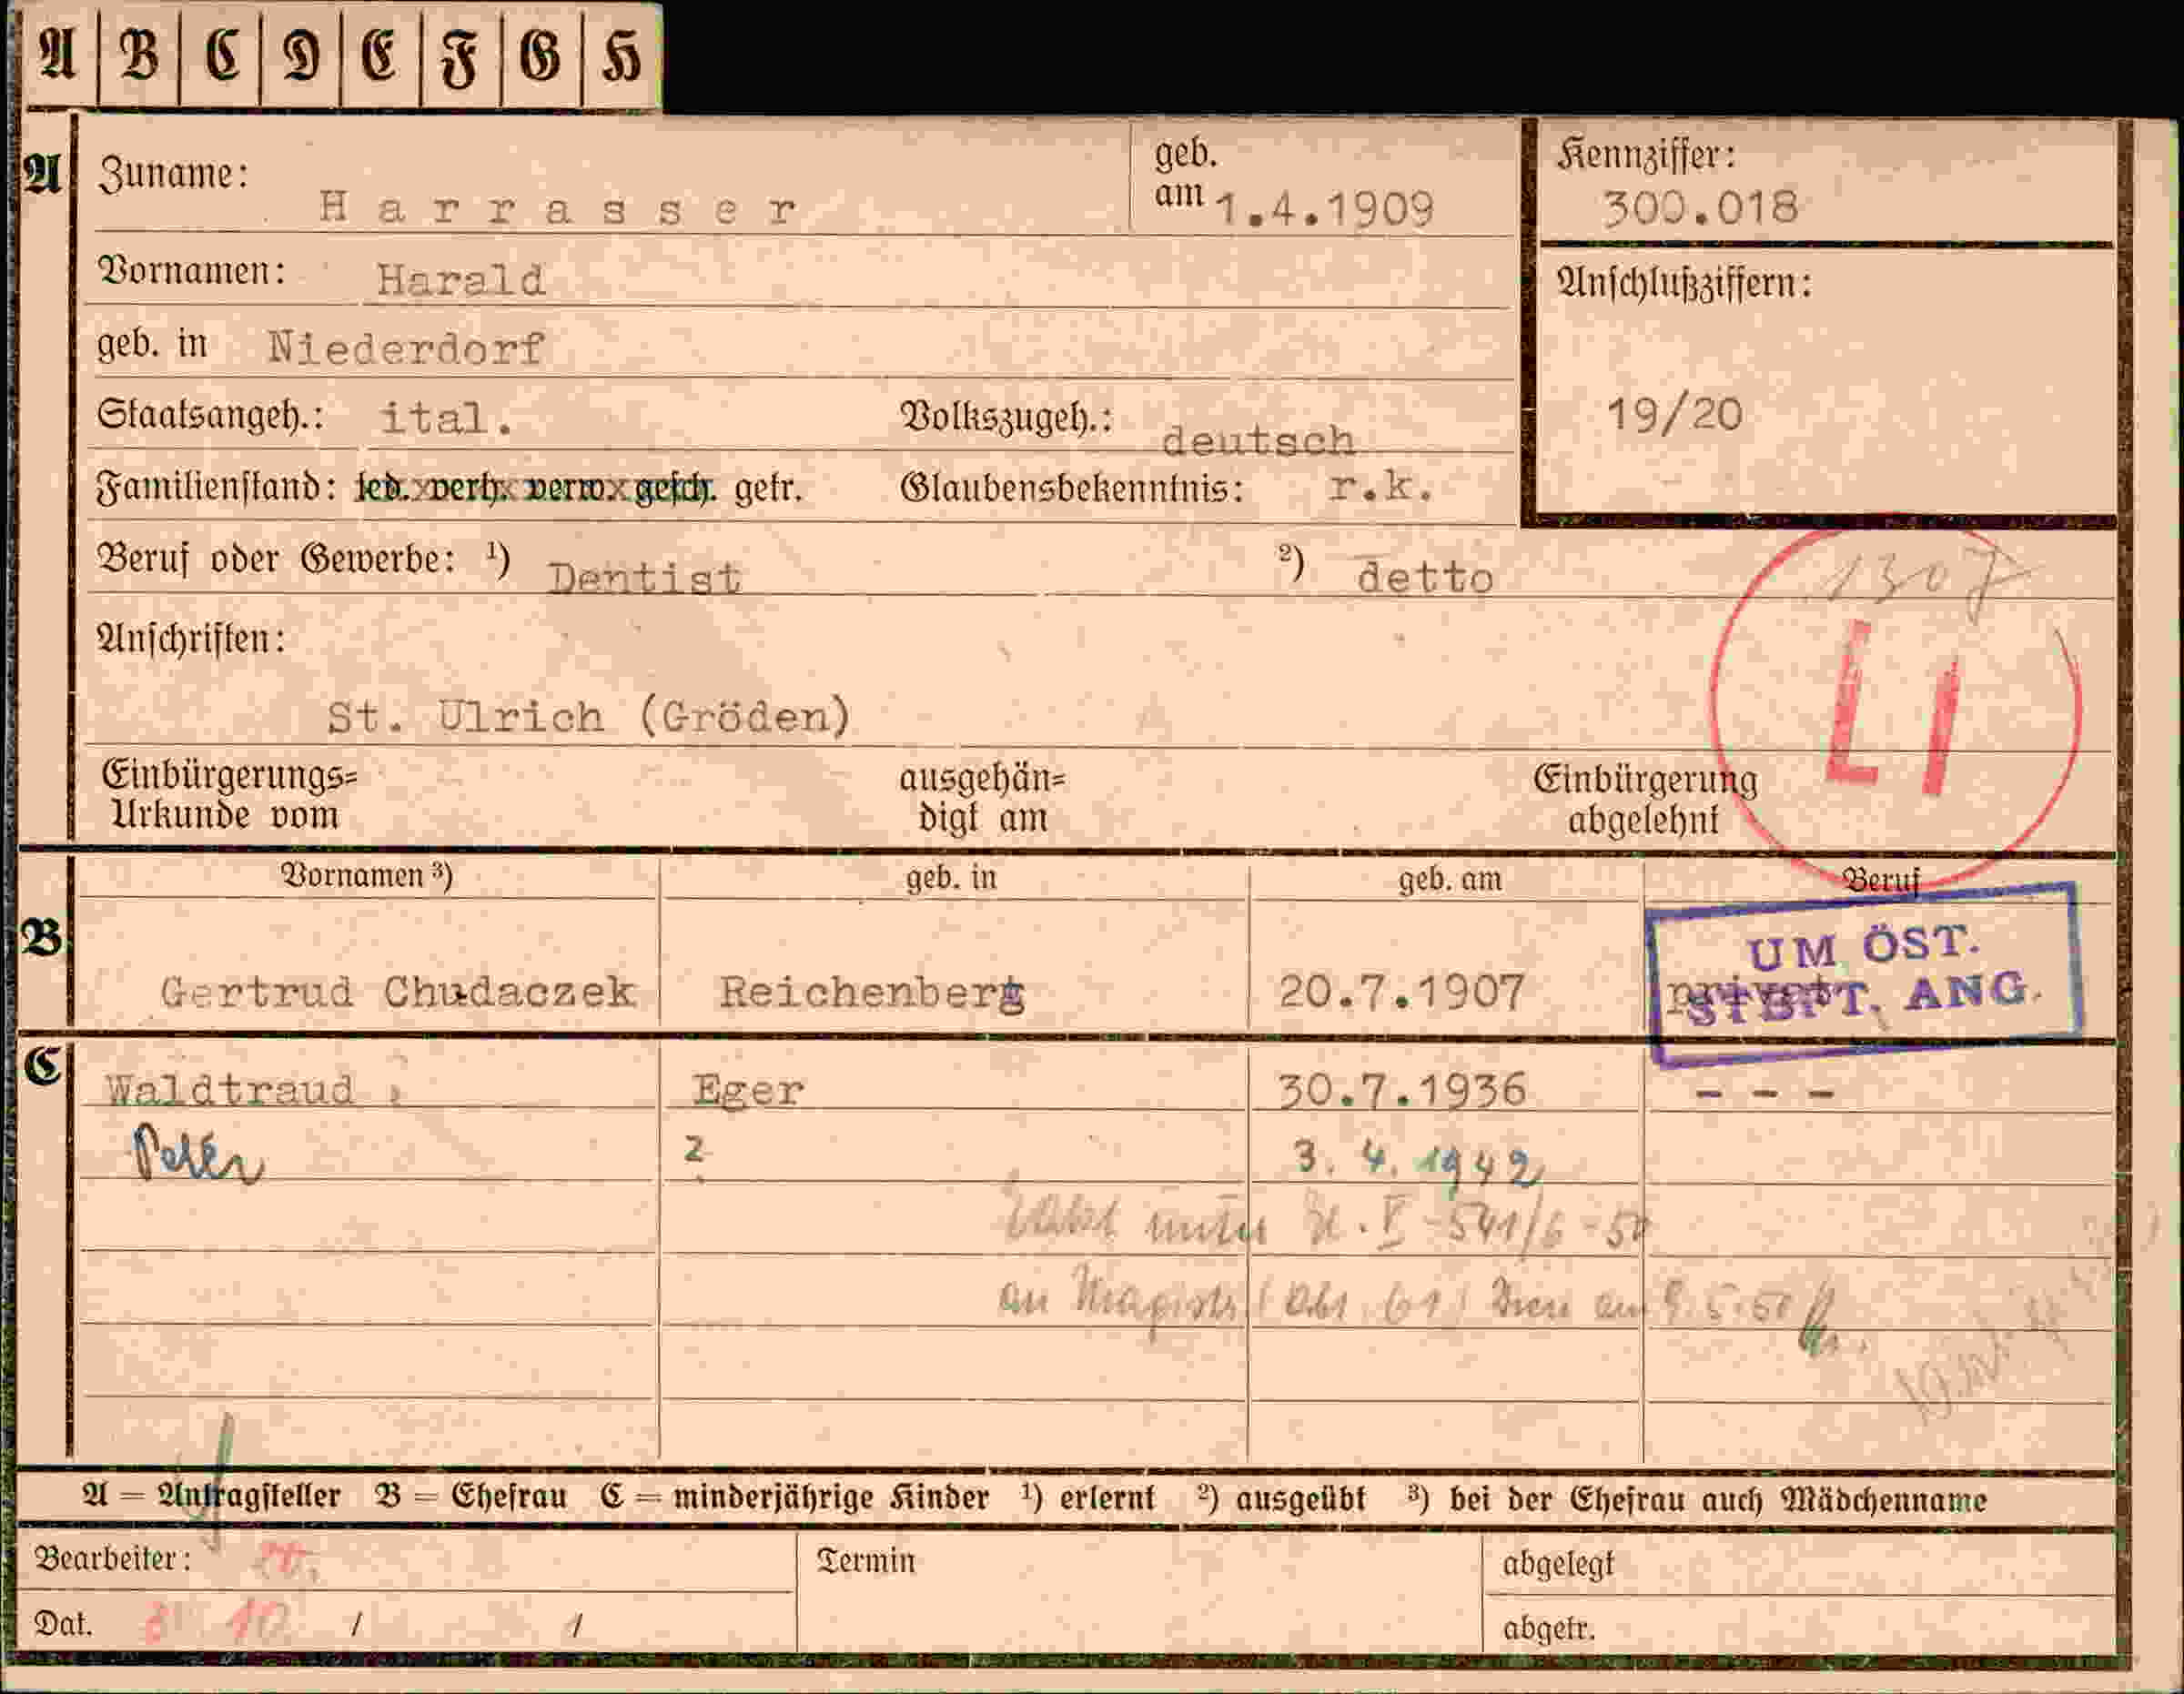 A B C D E F G H
A Zuname: Harrasser geb. am 1.4.1909
Kennziffer: 300.018
Vornamen: Harald
Anschlußziffern: 19/20
geb. in Niederdorf
Staatsangeh.: ital. Volkszugeh.: deutsch
Familienstand: led. verh. verw. gesch. getr. Glaubensbekenntnis: r.k.
Beruf oder Gewerbe: ¹) Dentist ²) detto
1307
LI
Anschriften:
St. Ulrich (Gröden)
Einbürgerungs= ausgehän= Einbürgerung
Urkunde vom digt am abgelehnt
Vornamen ³) geb. in geb. am Beruf
UM ÖST.
STBT. ANG.
B Gertrud Chudaczek Reichenberg 20.7.1907 privat
C Waldtraud Eger 30.7.1936 - - -
Peter ? 3. 4. 1942
unter V-541/6-50
an Magistr. Abt. 61 Wien am 9.5.50
A = Antragsteller B = Ehefrau C = minderjährige Kinder ¹) erlernt ²) ausgeübt ³) bei der Ehefrau auch Mädchenname
Bearbeiter: Termin abgelegt
Dat. 10 / / abgetr.